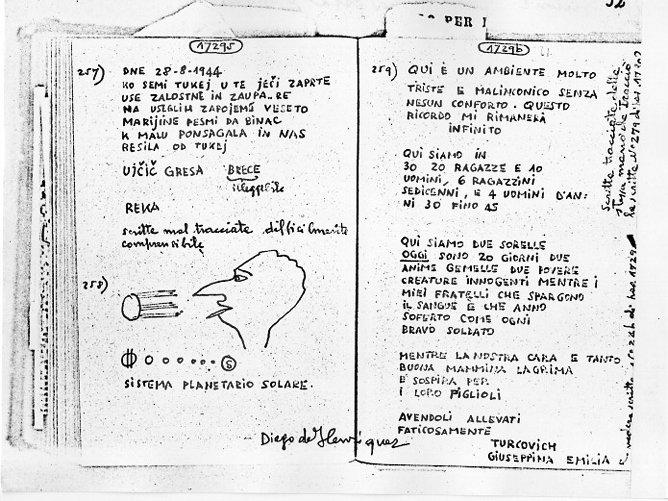 PER
17295
257) DNE 28-8-1944
KO SEMI TUKEJ U TE JEČI ZAPRTE
USE ZALOSTNE IN ZAUPA..RE
NA USEGLIH ZAPOJEMO VESETO
MARIJINE PESMI DA BINAC
K MALU PONSAGALA IN NAS
RESILA OD TUKEJ
UJČIČ GRESA BRECE
illeggibile
REKA
scritte mal tracciate difficilmente
comprensibile
258)
S
SISTEMA PLANETARIO SOLARE.
Diego de Henriquez
1729b
259) QUI È UN AMBIENTE MOLTO
TRISTE E MALINCONICO SENZA
NESUN CONFORTO. QUESTO
RICORDO MI RIMANERÀ
INFINITO
QUI SIAMO IN
30 20 RAGAZZE E 10
UOMINI, 6 RAGAZZINI
SEDICENNI, E 4 UOMINI D'AN-
NI 30 FINO 45
QUI SIAMO DUE SORELLE
OGGI SONO 20 GIORNI DUE
ANIME GEMELLE DUE POVERE
CREATURE INNOGENTI MENTRE I
MIEI FRATELLI CHE SPARGONO
IL SANGUE E CHE ANNO
SOFERTO COME OGNI
BRAVO SOLDATO
MENTRE LA NOSTRA CARA E TANTO
BUONA MAMMINA LAGRIMA
E SOSPIRA PER
I LORO FIGLIOLI
AVENDOLI ALLEVATI
FATICOSAMENTE
TURCOVICH
GIUSEPPINA EMILIA
scritte tracciate dalla
stessa mano che tracciò
la scritta N° 279 di